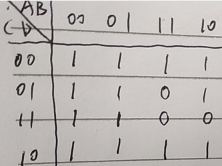 AB
CD 00 01 11 10
00 1 1 1 1
01 1 1 0 1
11 1 1 0 0
10 1 1 1 1